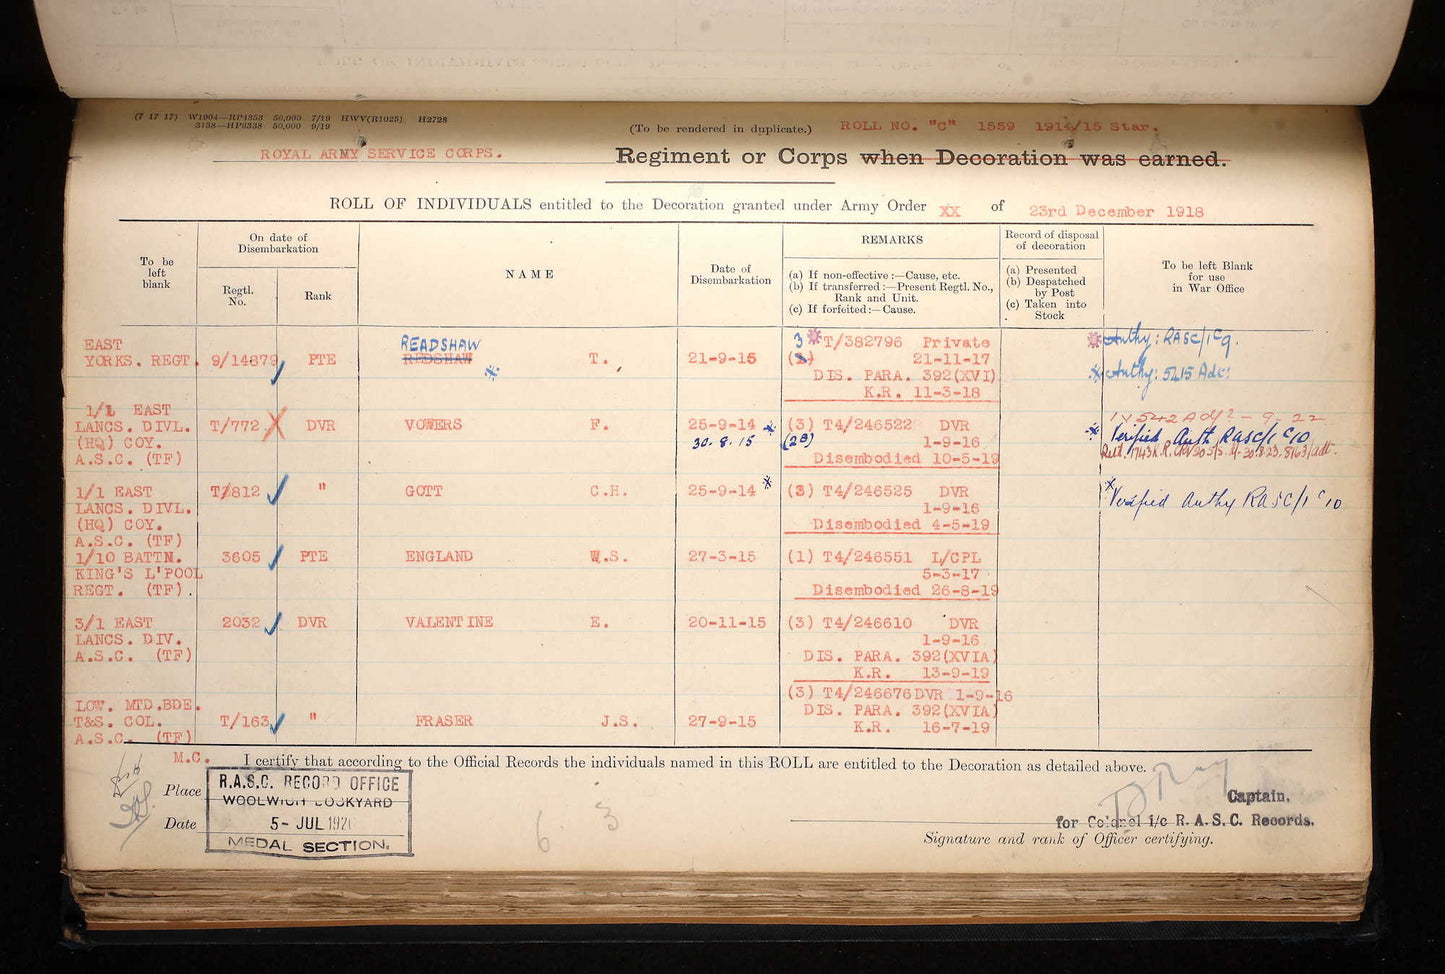 (7 17 17) W1904—RP4353 50,000 7/19 HWV(R1025) H2728
3138—HP6338 50,000 9/19
(To be rendered in duplicate.) ROLL NO. "C" 1559 1914/15 Star.
ROYAL ARMY SERVICE CORPS. Regiment or Corps when Decoration was earned.
ROLL OF INDIVIDUALS entitled to the Decoration granted under Army Order XX of 23rd December 1918
To be left blank
On date of Disembarkation
Regtl. No.
Rank
NAME
Date of Disembarkation
REMARKS
(a) If non-effective :—Cause, etc.
(b) If transferred :—Present Regtl. No., Rank and Unit.
(c) If forfeited :—Cause.
Record of disposal of decoration
(a) Presented
(b) Despatched by Post
(c) Taken into Stock
To be left Blank for use in War Office
EAST READSHAW 3 T/382796 Private Authy: RASC/1 C9.
YORKS. REGT. 9/14879 PTE REDSHAW T. 21-9-15 21-11-17
DIS. PARA. 392(XVI) Authy: 5215 Adt:
K.R. 11-3-18
1/1 EAST
LANCS. DIVL. T/772 DVR VOWERS F. 25-9-14 (3) T4/246522 DVR
(HQ) COY. 30.8.15 1-9-16 Verified Auth RASC/1 C10
A.S.C. (TF) Disembodied 10-5-19
1/1 EAST T/812 " GOTT C.H. 25-9-14 (3) T4/246525 DVR
LANCS. DIVL. 1-9-16 Verified Authy RASC/1 C10
(HQ) COY. Disembodied 4-5-19
A.S.C. (TF)
1/10 BATTN. 3605 PTE ENGLAND W.S. 27-3-15 (1) T4/246551 L/CPL
KING'S L'POOL 5-3-17
REGT. (TF). Disembodied 26-8-19
3/1 EAST 2032 DVR VALENTINE E. 20-11-15 (3) T4/246610 DVR
LANCS. DIV. 1-9-16
A.S.C. (TF) DIS. PARA. 392(XVIA)
K.R. 13-9-19
(3) T4/246676 DVR 1-9-16
LOW. MTD.BDE. DIS. PARA. 392(XVIA)
T&S. COL. T/163 " FRASER J.S. 27-9-15 K.R. 16-7-19
A.S.C. (TF)
M.C. I certify that according to the Official Records the individuals named in this ROLL are entitled to the Decoration as detailed above.
Place
R.A.S.C. RECORD OFFICE
WOOLWICH DOCKYARD
Date
5- JUL 192
MEDAL SECTION.
6. 3
Captain,
for Colonel i/c R.A.S.C. Records.
Signature and rank of Officer certifying.